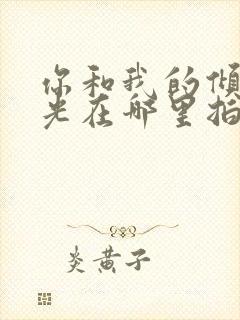 你和我的倾
光在哪里拍
炎黄子